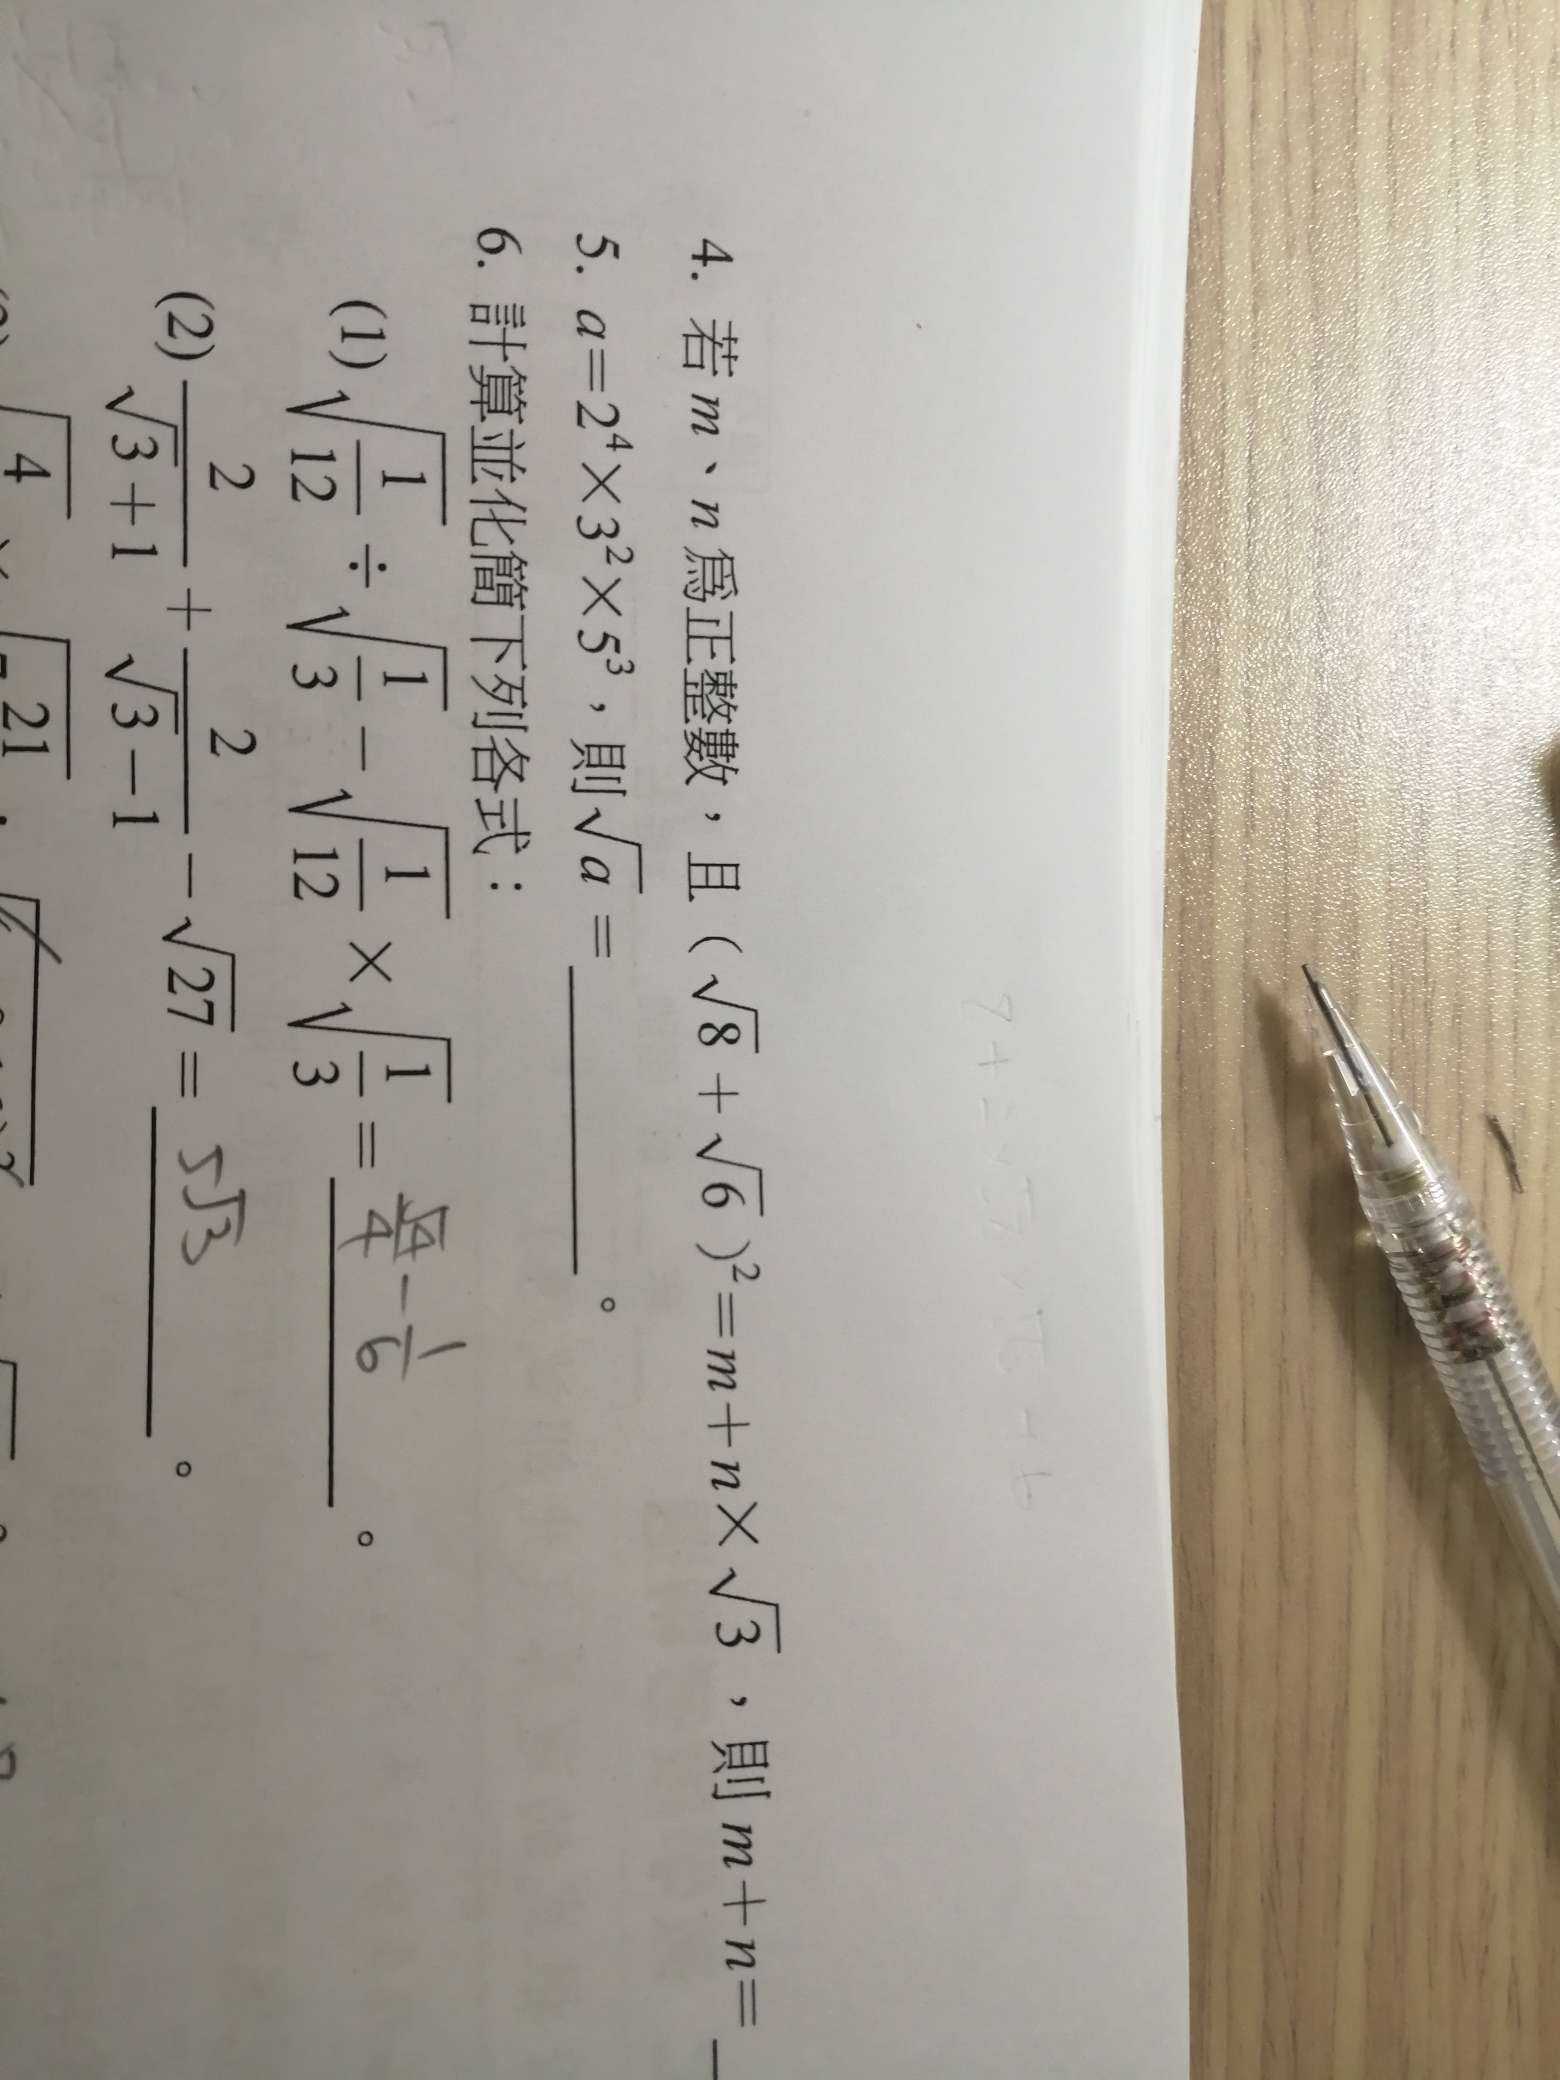 4. 若 m、n 為正整數，且 (√8 + √6)² = m + n × √3，則 m + n =
5. a = 2⁴ × 3² × 5³，則 √a = ______。
6. 計算並化簡下列各式：
(1) √(1/12) ÷ √(1/3) − √(1/12) × √(1/3) = √4/4 − 1/6。
(2) 2/(√3+1) + 2/(√3−1) − √27 = 5√3。
√4 √21